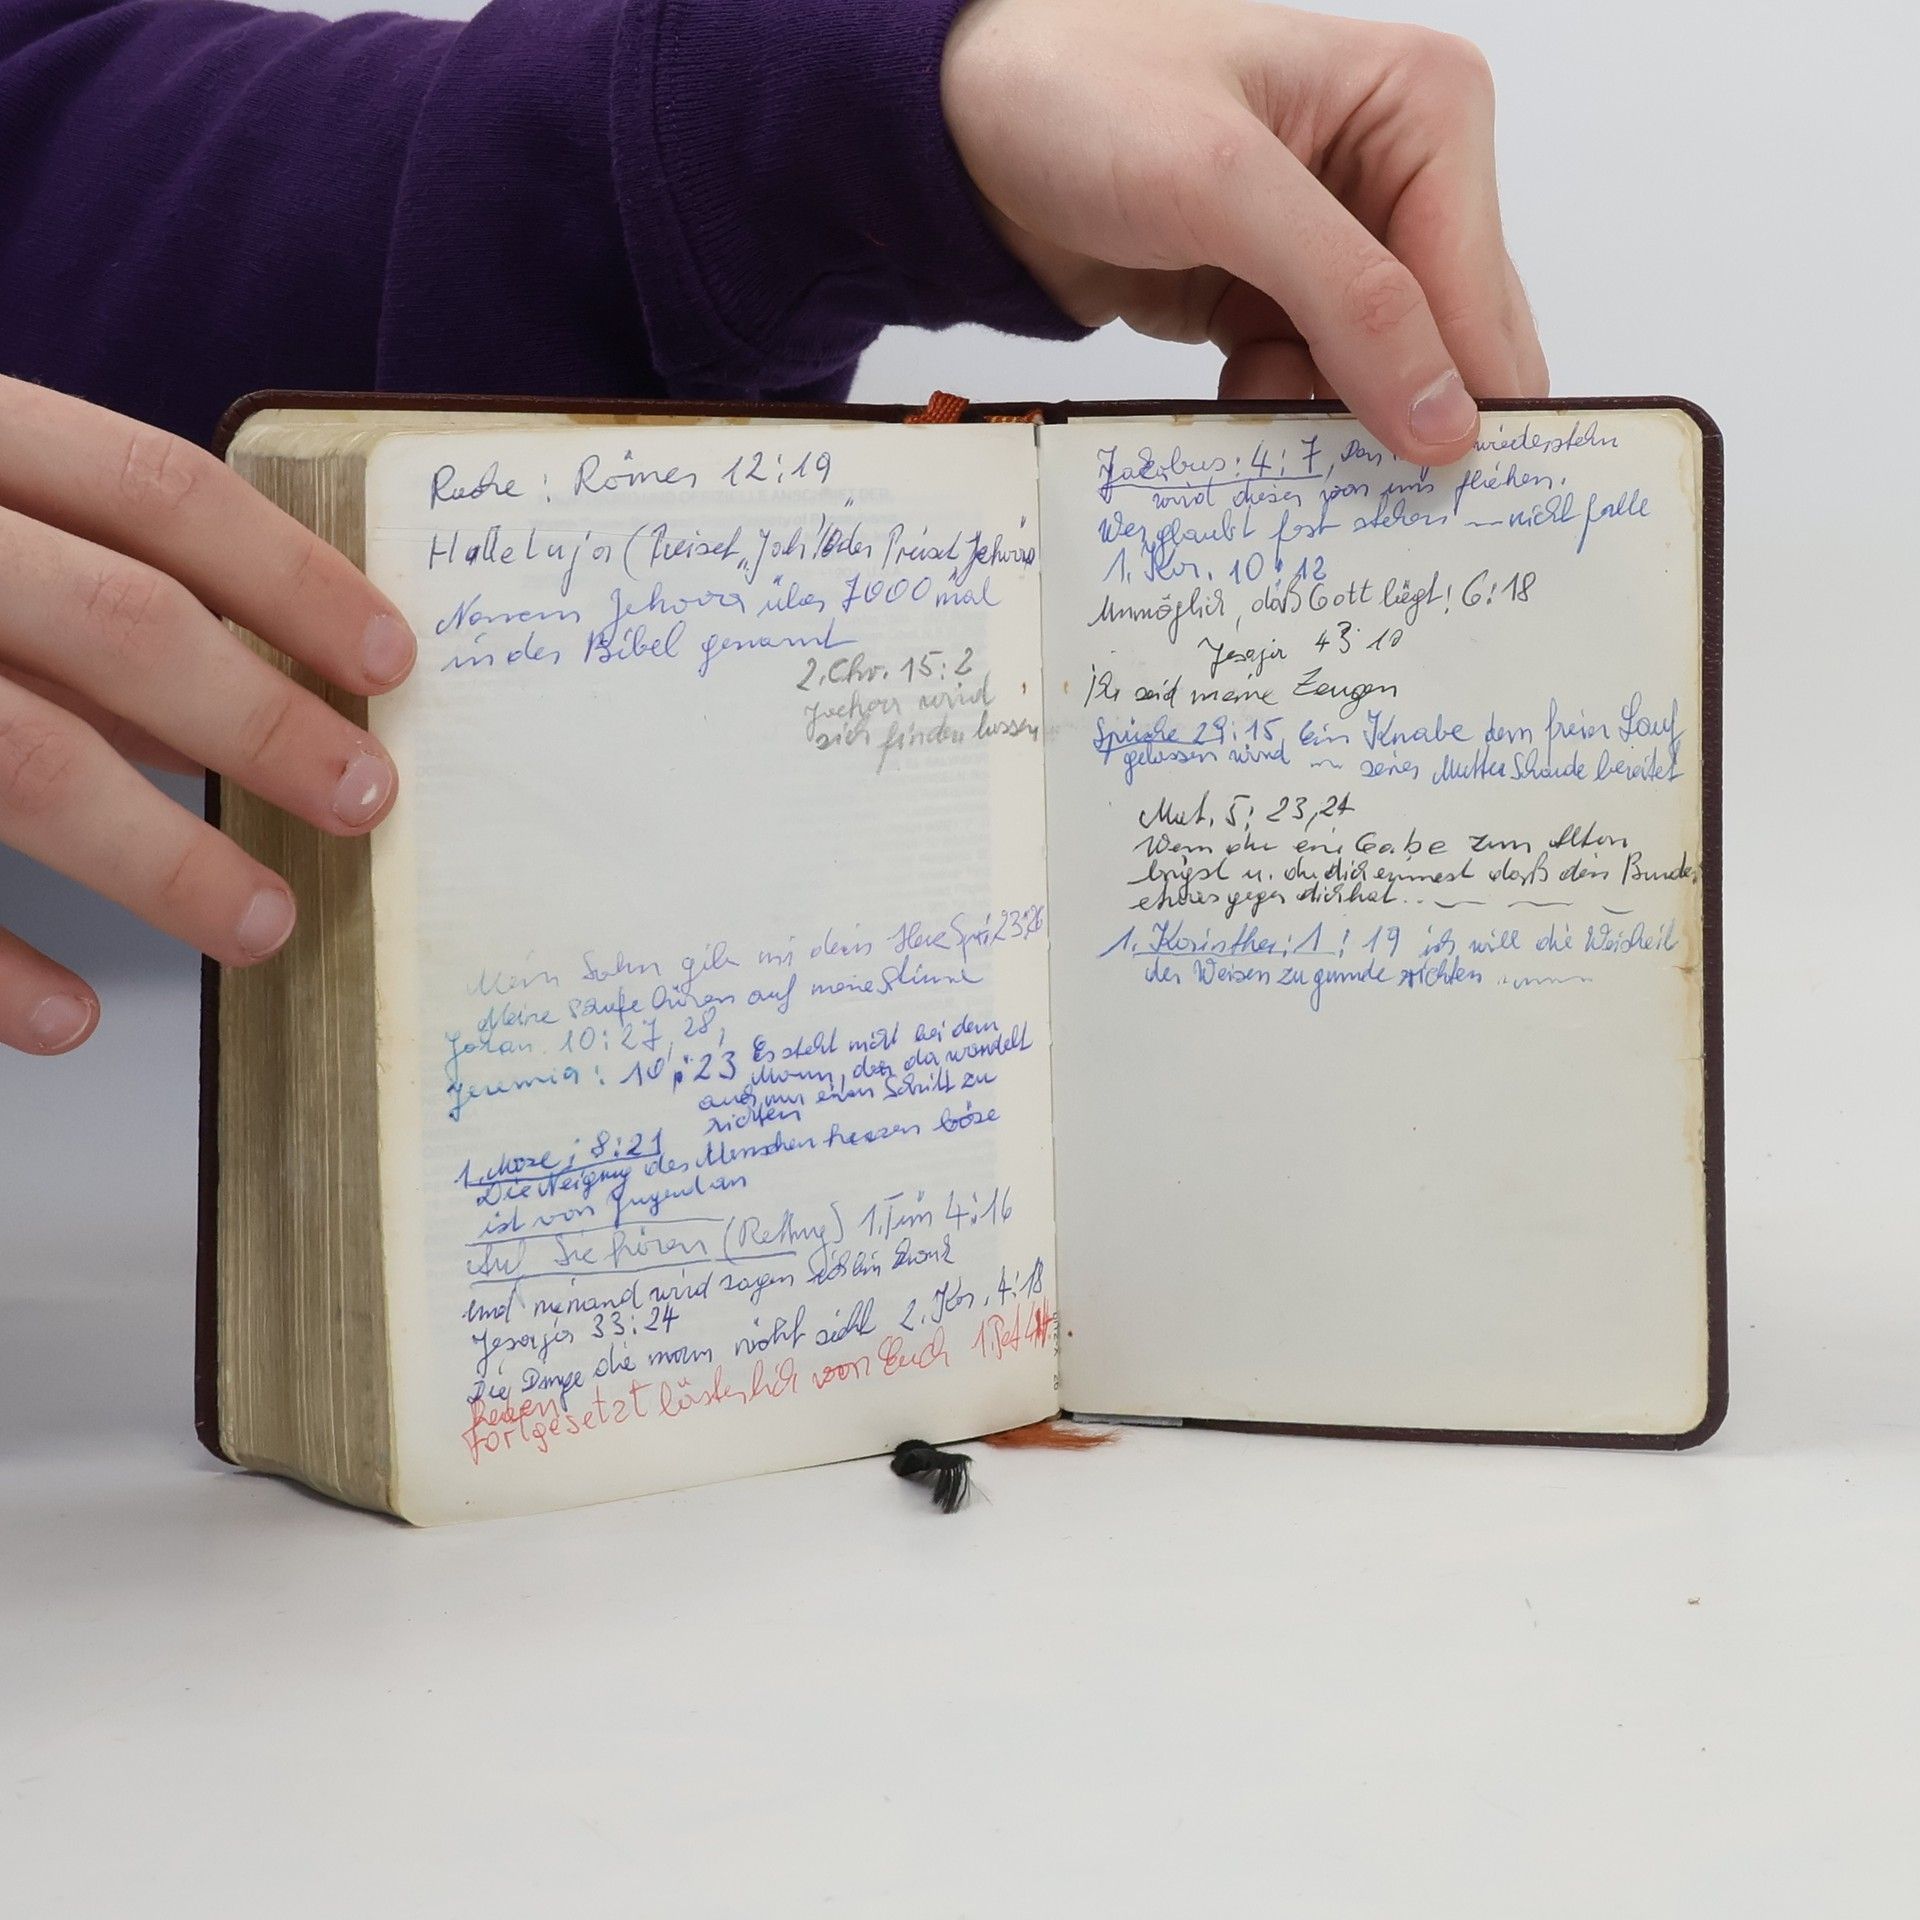 Rache: Römer 12:19
Halleluja (Preiset „Jah“! Oder Preiset „Jehova“
Namen Jehova über 7000 mal
in der Bibel genannt
2. Chr. 15:2
Jehova wird
sich finden lassen
Mein Sohn gib mir dein Herz Spr: 23:26
Meine Schafe hören auf meine Stimme
Johan. 10:27, 28,
Jeremia: 10:23 Es steht nicht bei dem
Mann, der da wandelt
auch nur einen Schritt zu
richten
1. Mose; 8:21
Die Neigung des Menschen herzen böse
ist von Jugend an
Auf Sie hören (Rettung) 1. Tim 4:16
Und niemand wird sagen ich bin krank
Jesaja 33:24
Die Dinge die man nicht sieht 2. Kor. 4:18
fortgesetzt lästerlich von Euch 1. Pet 4:4
Jakobus: 4:7, wiederstehn
wird dieser von uns fliehen.
Wer glaubt fest stehen — nicht falle
1. Kor. 10:12
Unmöglich, daß Gott lügt! 6:18
Jesaja 43:10
Ihr seid meine Zeugen
Sprüche 29:15, Ein Knabe dem freier Lauf
gelassen wird seiner Mutter Schande bereitet
Mat. 5:23,24
Wenn du eine Gabe zum Altar
bringst u. du dich erinnerst daß dein Bruder
etwas gegen dich hat...
1. Korinther: 1:19 ich will die Weisheit
der Weisen zugrunde richten ...